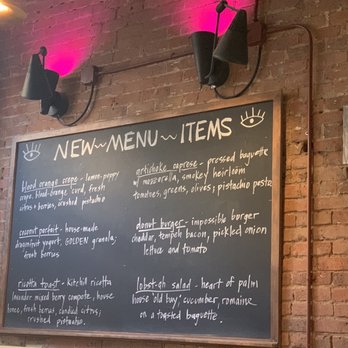 NEW MENU ITEMS
blood orange crepe - lemon-poppy
crepe, blood-orange curd, fresh
citrus + berries, crushed pistachio
coconut parfait - house-made
dragonfruit yogurt, GOLDEN granola,
fresh berries
ricotta toast - Kitehill ricotta
lavender mixed berry compote, house
honee, fresh berries, candied citrus,
crushed pistachio.
artichoke caprese - pressed baguette
w/ mozzarella, smokey heirloom
tomatoes, greens, olives, pistachio pesto
donut burger - impossible burger
cheddar, tempeh bacon, pickled onion
lettuce and tomato
lobst-ah salad - heart of palm
house 'old bay', cucumber, romaine
on a toasted baguette.